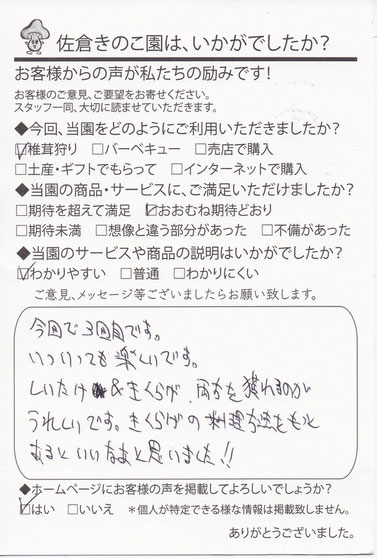 佐倉きのこ園は、いかがでしたか？
お客様からの声が私たちの励みです！
お客様のご意見、ご要望をお寄せください。
スタッフ一同、大切に読ませていただきます。
◆今回、当園をどのようにご利用いただきましたか？
☑椎茸狩り □バーベキュー □売店で購入
□土産・ギフトでもらって □インターネットで購入
◆当園の商品・サービスに、ご満足いただけましたか？
□期待を超えて満足 ☑おおむね期待どおり
□期待未満 □想像と違う部分があった □不備があった
◆当園のサービスや商品の説明はいかがでしたか？
☑わかりやすい □普通 □わかりにくい
ご意見、メッセージ等ございましたらお願い致します。
今回で3回目です。
いついっても楽しいです。
しいたけ&生くらげ、両方を獲れるのが
うれしいです。生くらげの料理方法をもっと
あるといいなぁと思いました!!
◆ホームページにお客様の声を掲載してよろしいでしょうか？
☑はい □いいえ ＊個人が特定できる様な情報は掲載致しません。
ありがとうございました。